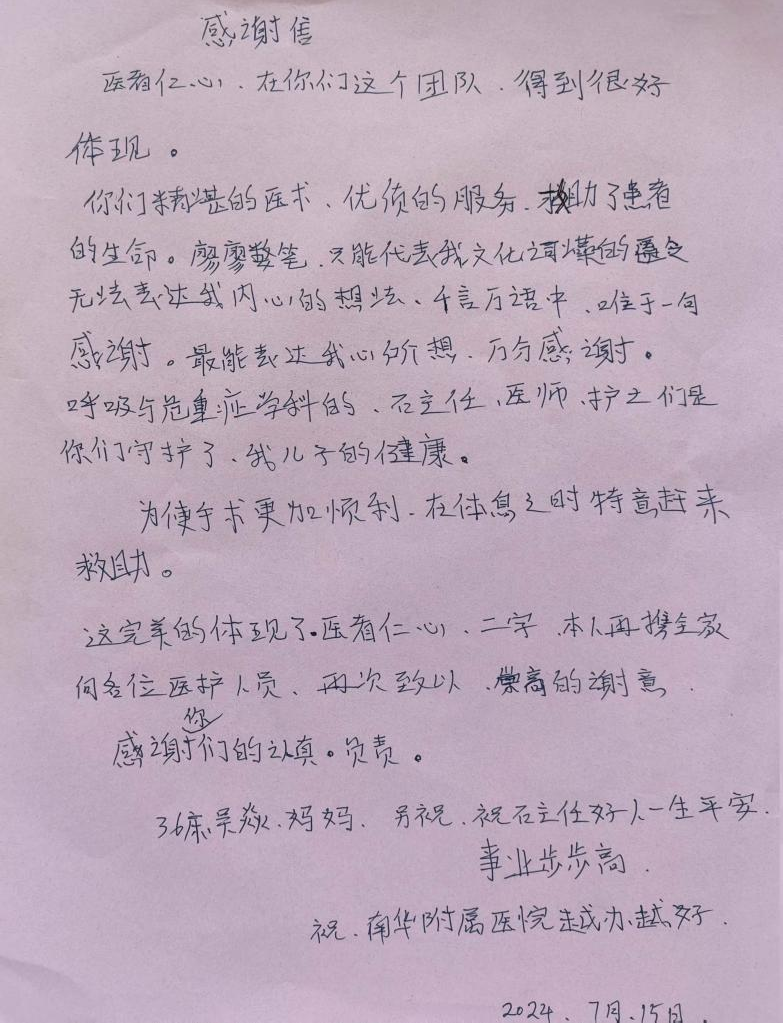 感谢信
医者仁心、在你们这个团队、得到很好
体现。
你们精湛的医术、优质的服务、救助了患者
的生命。廖廖数笔、只能代表我文化词汇的匮乏
无法表达我内心的想法、千言万语中、唯于一句
感谢。最能表达我心的想、万分感谢。
呼吸与危重症学科的、石主任、医师、护士们是
你们守护了、我儿子的健康。
为使手术更加顺利、在休息之时特意赶来
救助。
这完美的体现了。医者仁心、二字、本人再携全家
向各位医护人员、再次致以、崇高的谢意、
感谢你们的认真。负责。
36床吴焱、妈妈、另祝、祝石主任好人一生平安、
事业步步高、
祝、南华附属医院越办越好、
2024、7月、15日、